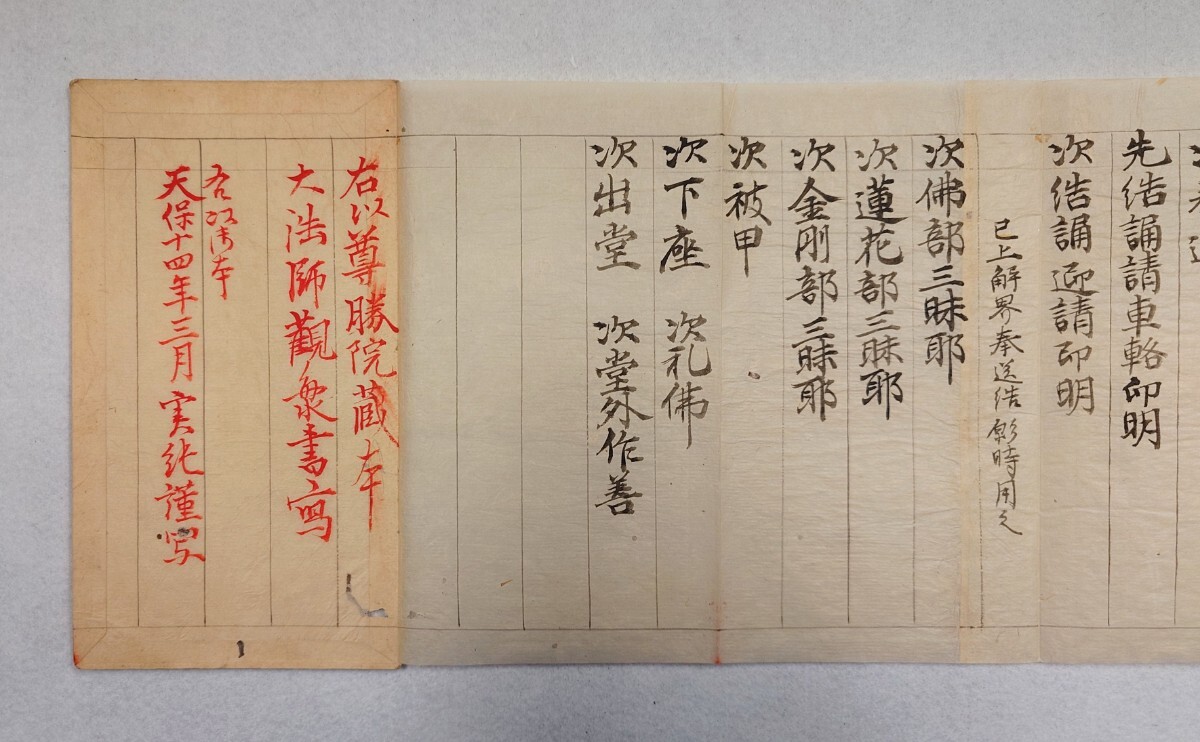 先結誦請車輅印明
次結誦迎請印明
已上解界奉送結願時用之
次佛部三昧耶
次蓮花部三昧耶
次金剛部三昧耶
次被甲
次下座 次礼佛
次出堂 次堂外作善
右以尊勝院蔵本
大法師觀衆書寫
右以本
天保十四年三月実純謹写